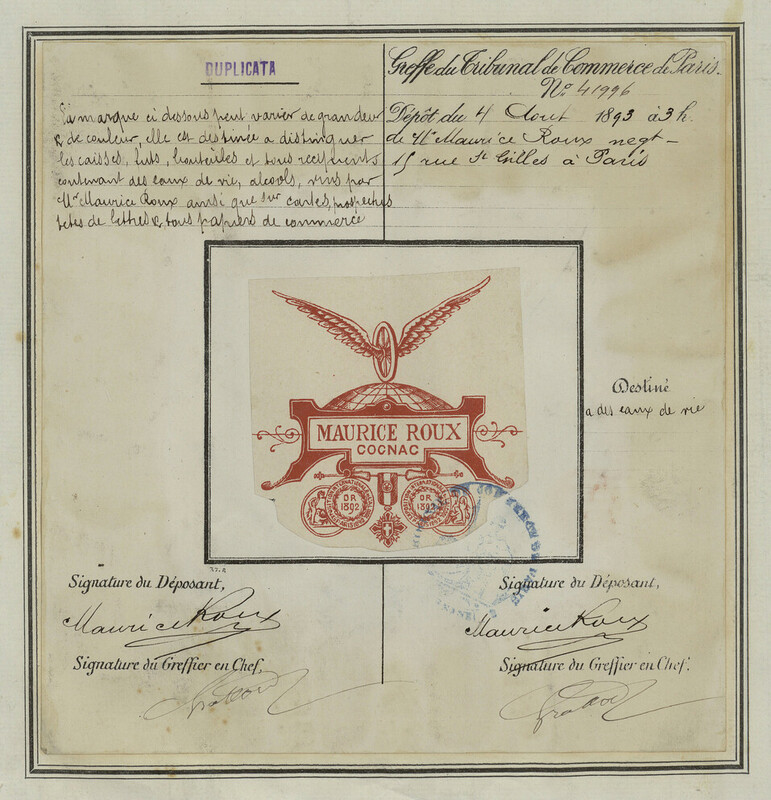 DUPLICATA
La marque ci dessous peut varier de grandeur
& de couleur, elle est destinée a distinguer
les caisses, futs, bouteilles et tous recipients
contenant des eaux de vie, alcools, vins par
Mr Maurice Roux ainsi que sur cartes, prospectus
têtes de lettres & tous papiers de commerce
Greffe du Tribunal de Commerce de Paris.
No. 41996
Dépôt du 4 Aout 1893 à 3 h.
de Mr Maurice Roux negt
15 rue St Gilles à Paris
MAURICE ROUX
COGNAC
OR
1892
OR
1892
Destiné
a des eaux de vie
Signature du Déposant,
Maurice Roux
Signature du Greffier en Chef,
Signature du Déposant,
Maurice Roux
Signature du Greffier en Chef.